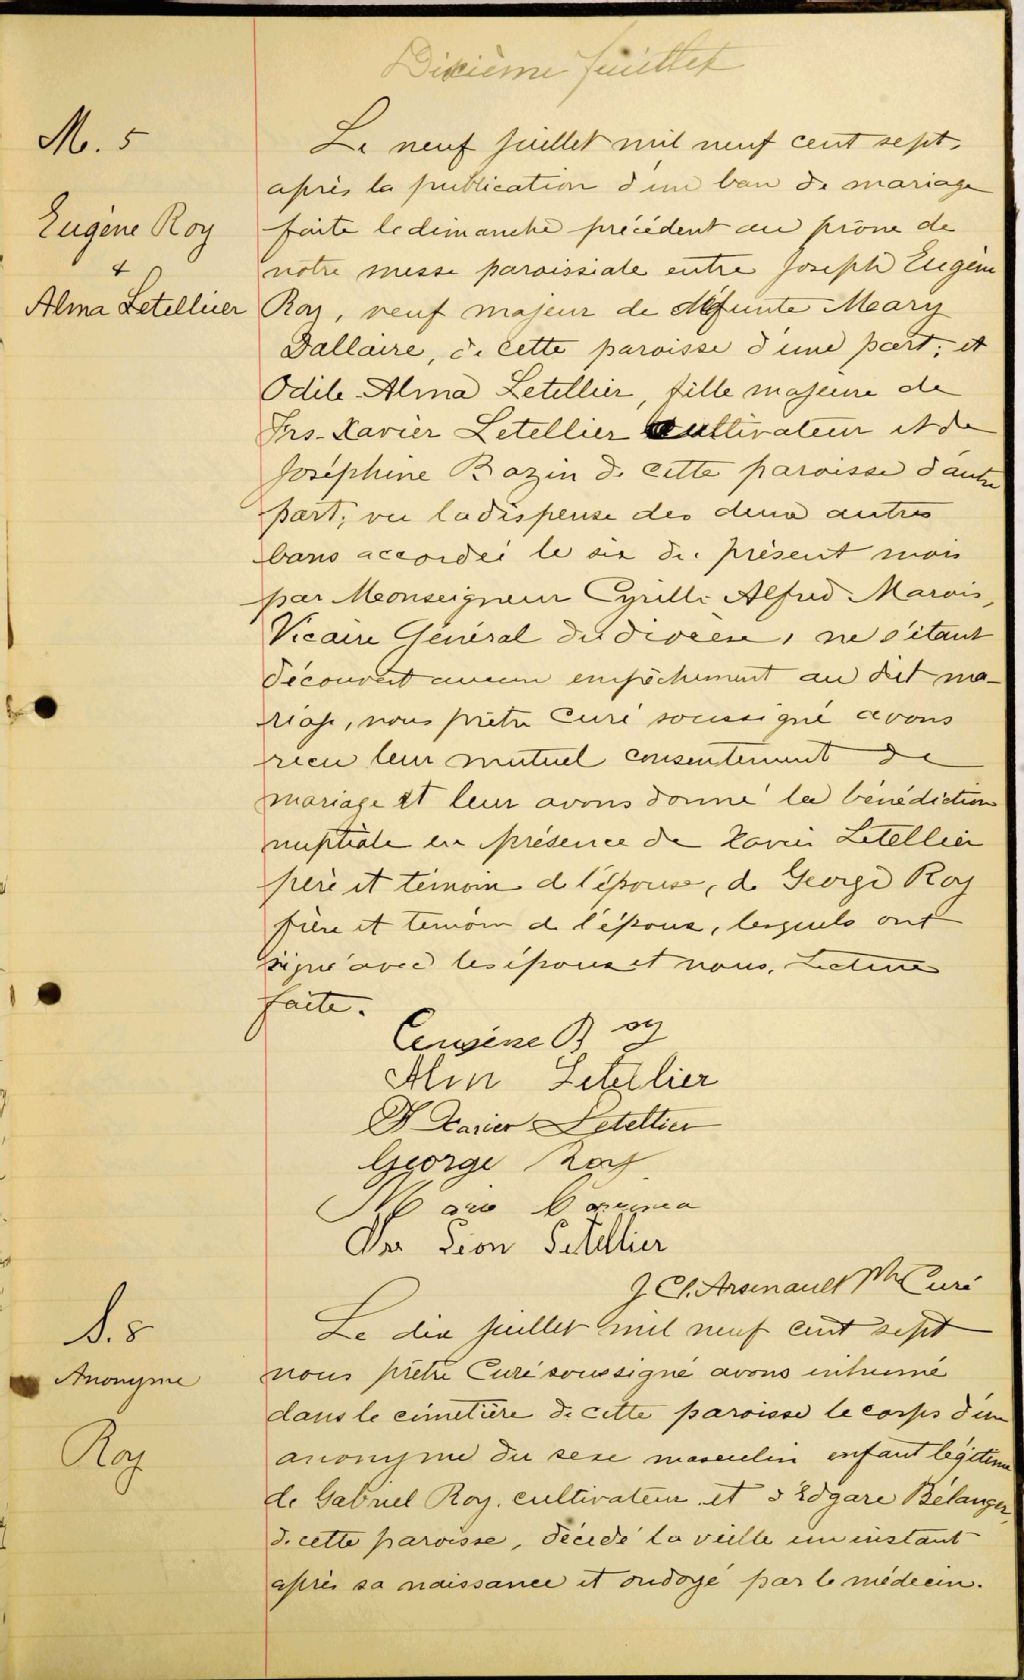 Dixième feuillet
M. 5
Eugène Roy
&
Alma Letellier
Le neuf juillet mil neuf cent sept,
après la publication d'un ban de mariage
faite le dimanche précédent au prône de
notre messe paroissiale entre Joseph Eugène
Roy, veuf majeur de défunte Mary
Dallaire, de cette paroisse d'une part; et
Odile-Alma Letellier, fille majeure de
Frs-Xavier Letellier cultivateur et de
Joséphine Bazin de cette paroisse d'autre
part; vu la dispense des deux autres
bans accordée le six du présent mois
par Monseigneur Cyrille Alfred Marois,
Vicaire Général du diocèse, ne s'étant
découvert aucun empêchement au dit ma-
riage, nous prêtre curé soussigné avons
reçu leur mutuel consentement de
mariage et leur avons donné la bénédiction
nuptiale en présence de Xavier Letellier
père et témoin de l'épouse, de George Roy
frère et témoin de l'époux, lesquels ont
signé avec les époux et nous. Lecture
faite.
Eugène Roy
Alma Letellier
F Xavier Letellier
George Roy
Léon Letellier
J Cl. Arsenault Ptre Curé
S. 8
Anonyme
Roy
Le dix juillet mil neuf cent sept
nous prêtre Curé soussigné avons inhumé
dans le cimetière de cette paroisse le corps d'un
anonyme du sexe masculin enfant légitime
de Gabriel Roy, cultivateur et d'Edgare Bélanger,
de cette paroisse, décédé la veille un instant
après sa naissance et ondoyé par le médecin.